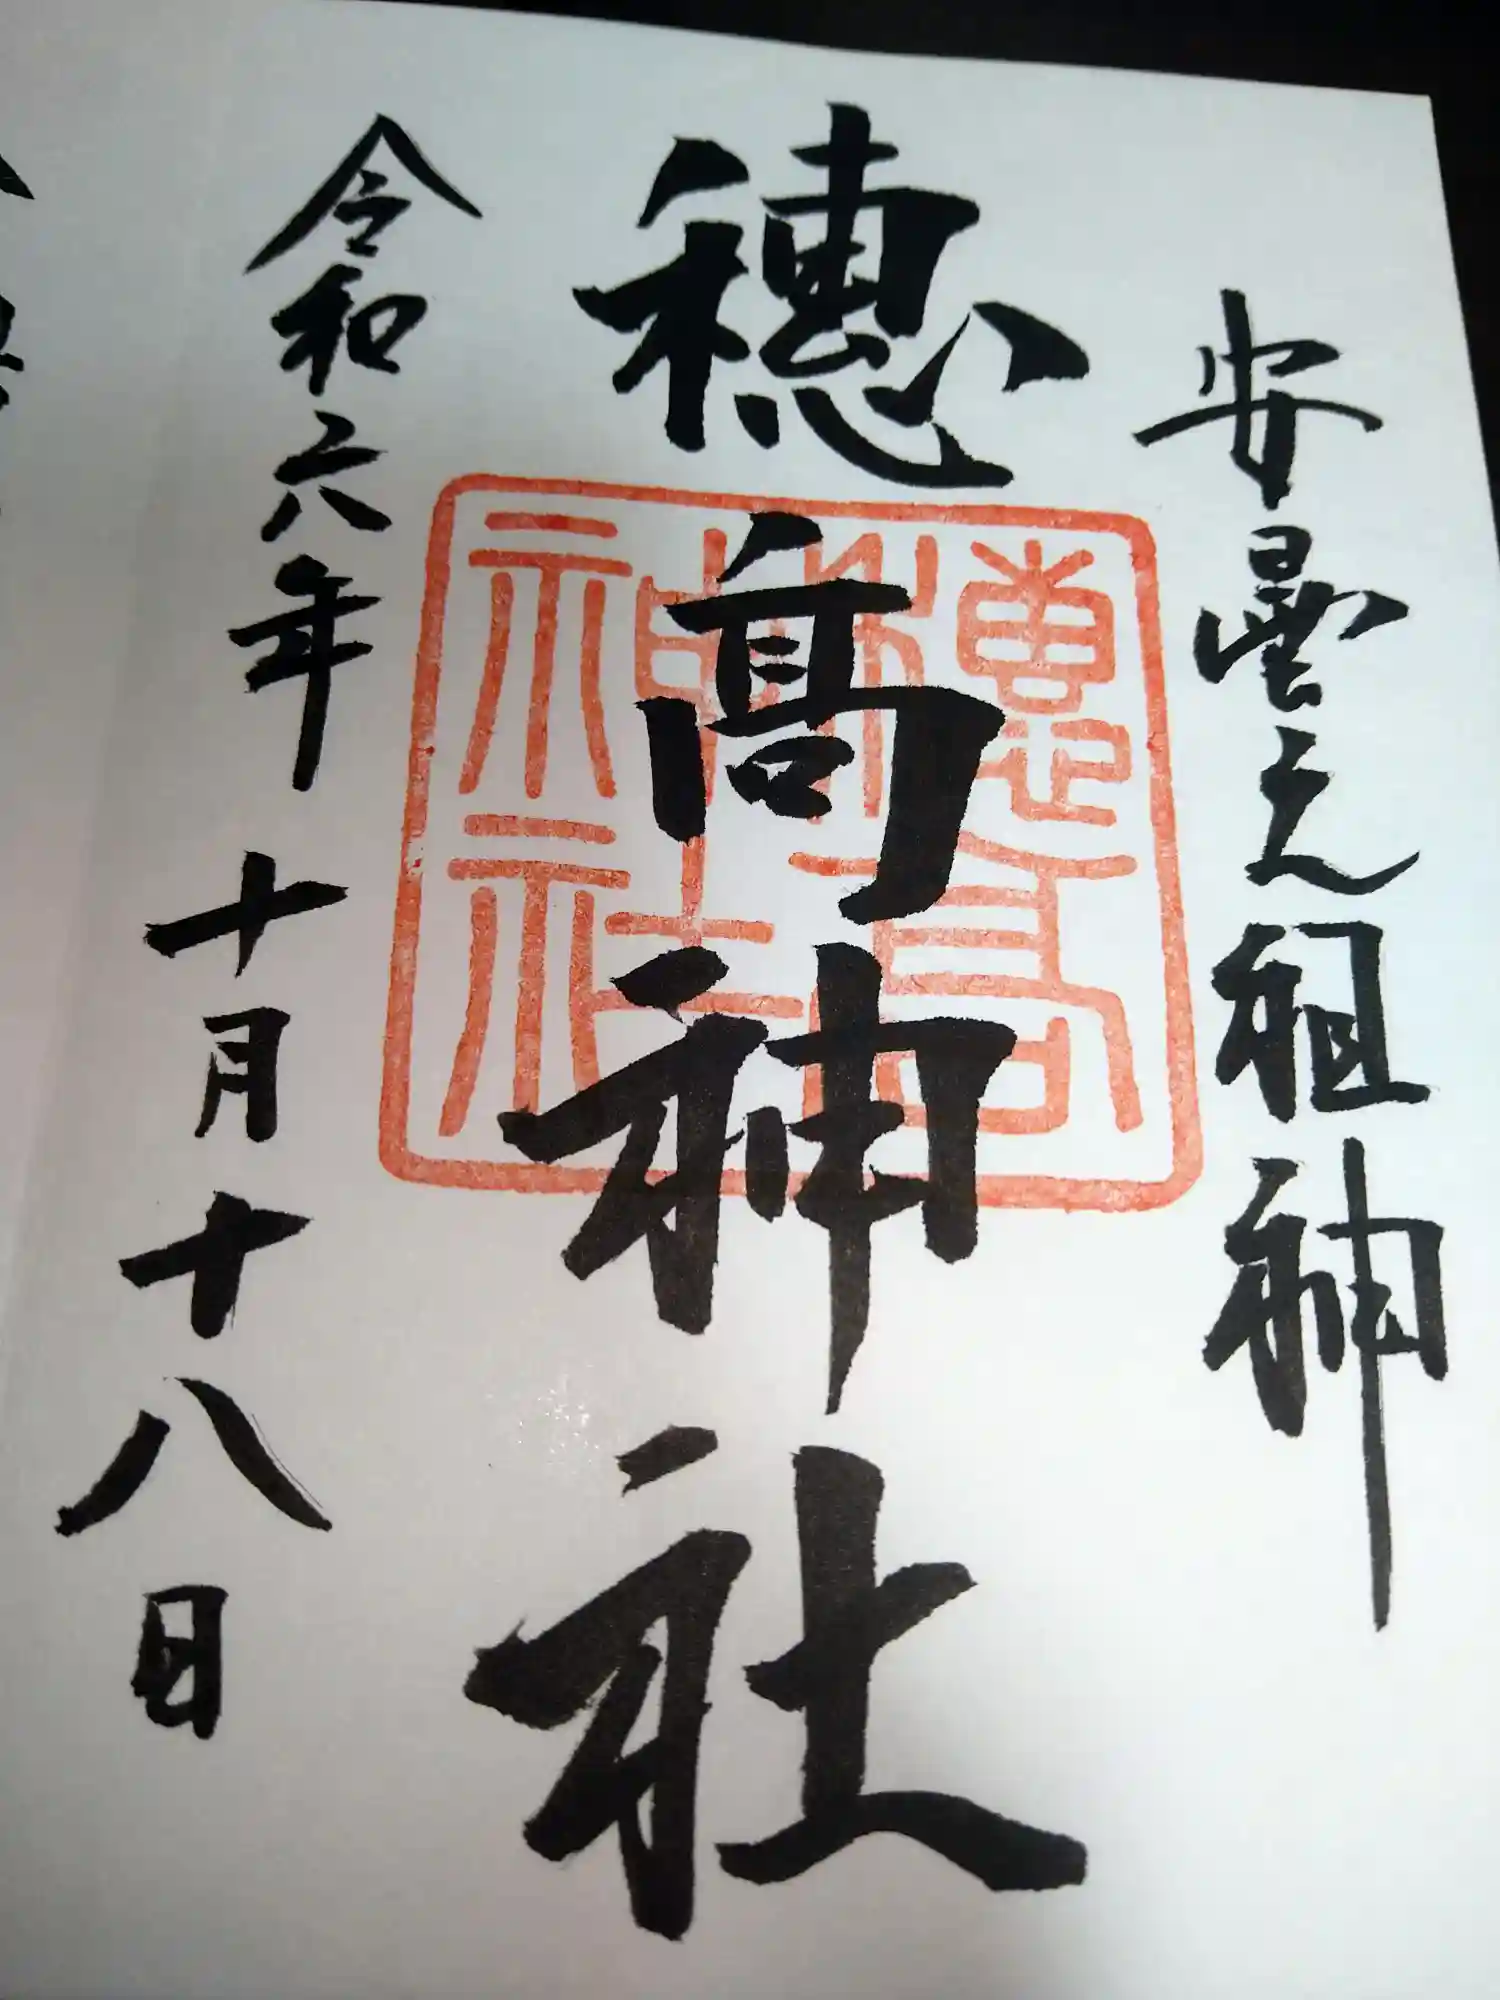 安曇之祖神
穂髙神社
穂高神社
令和六年十月十八日